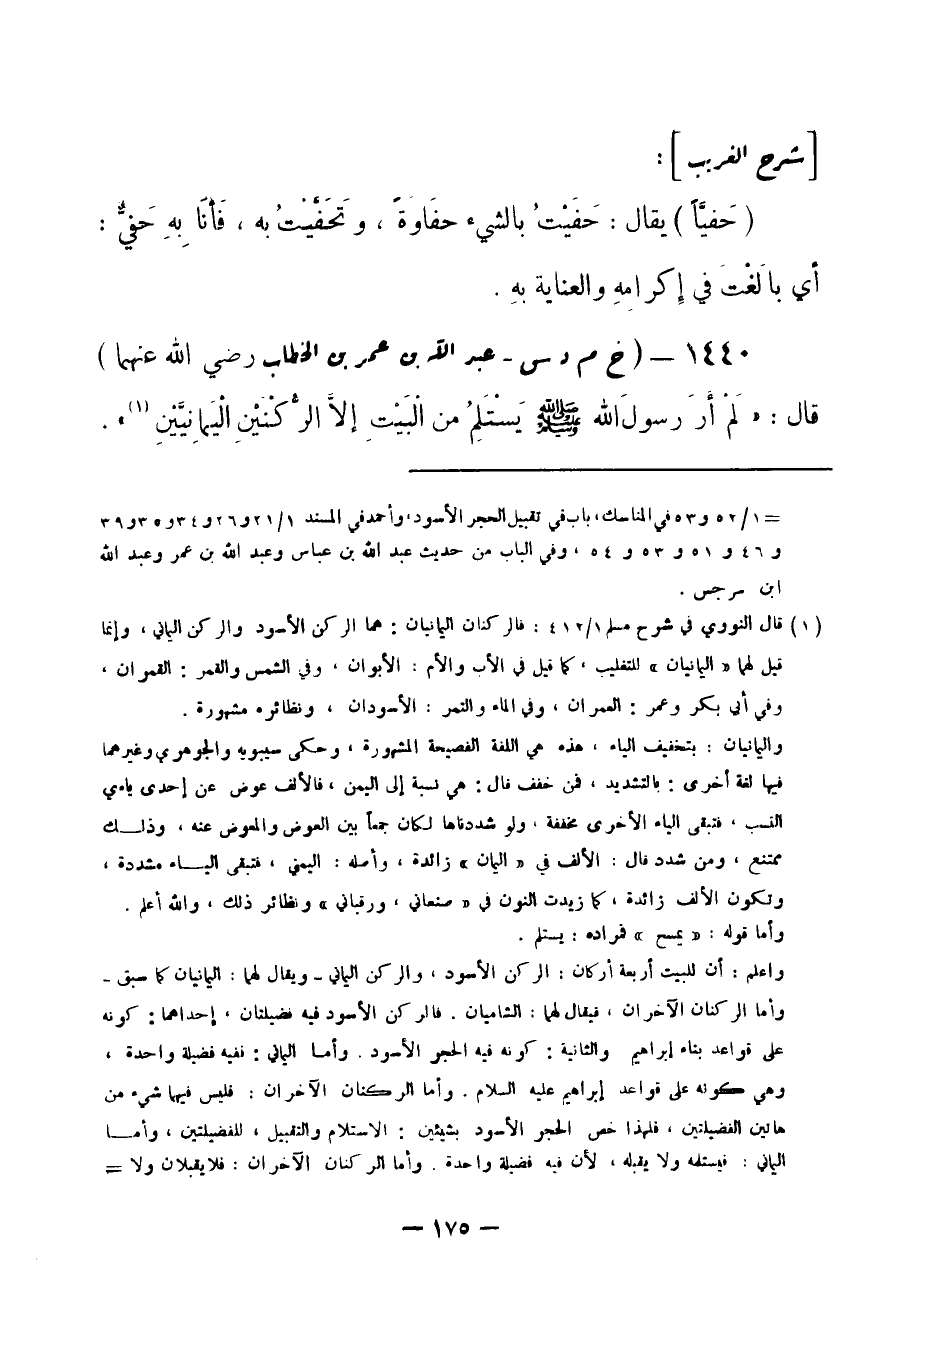 [ شرح الغريب ] :
( حَفيَّاً ) يقال : حَفَيْتُ بالشيء حفَاوَةً ، و تَحَفَّيْتُ به ، فَأنَا بِهِ حَفيٌّ :
أي بالَغْتَ في إكرامهِ والعناية بهِ .
١٤٤٠ — ( خ م د س - عبد الله بن عمر بن الخطاب رضي الله عنهما )
قال : « لَمْ أرَ رسولَ الله ﷺ يَسْتَلِمُ من الْبَيْتِ إلاَّ الرُّكْنَيْنِ الْيَمانِيَّيْنِ (١) » .
= ٥٢/١ و ٥٣ في المناسك، باب في تقبيل الحجر الأسود، وأحمد في المسند ٢١/١ و ٢٦ و ٣٤ و ٣٥ و ٣٩
و ٤٦ و ٥١ و ٥٣ و ٥٤ ، وفي الباب من حديث عبد الله بن عباس وعبد الله بن عمر وعبد الله
ابن سرجس .
(١) قال النووي في شرح مسلم ٤١٢/١ : فالركنان اليمانيان : هما الركن الأسود والركن اليماني ، وإنما
قيل لهما « اليمانيان » للتغليب ، كما قيل في الأب والأم : الأبوان ، وفي الشمس والقمر : القمران ،
وفي أبي بكر وعمر : العمران ، وفي الماء والتمر : الأسودان ، ونظائره مشهورة .
واليمانيان : بتخفيف الياء ، هذه هي اللغة الفصيحة المشهورة ، وحكى سيبويه والجوهري وغيرهما
فيها لغة أخرى : بالتشديد ، فمن خفف قال : هي نسبة إلى اليمن ، فالألف عوض عن إحدى ياءي
النسب ، فتبقى الياء الأخرى مخففة ، ولو شددناها لكان جمعاً بين العوض والمعوض عنه ، وذلك
ممتنع ، ومن شدد قال : الألف في « اليمان » زائدة ، وأصله : اليمني ، فتبقى الياء مشددة ،
وتكون الألف زائدة ، كما زيدت النون في « صنعاني ، ورقباني » ونظائر ذلك ، والله أعلم .
وأما قوله : « يمسح » فمراده : يستلم .
واعلم : أن للبيت أربعة أركان : الركن الأسود ، والركن اليماني - ويقال لهما : اليمانيان كما سبق -
وأما الركنان الآخران ، فيقال لهما : الشاميان . فالركن الأسود فيه فضيلتان ، إحداهما : كونه
على قواعد بناء إبراهيم والثانية : كونه فيه الحجر الأسود . وأما اليماني : ففيه فضيلة واحدة ،
وهي كونه على قواعد إبراهيم عليه السلام . وأما الركنان الآخران : فليس فيهما شيء من
هاتين الفضيلتين ، فلهذا خص الحجر الأسود بشيئين : الاستلام والتقبيل ، للفضيلتين ، وأما
اليماني : فيستلمه ولا يقبله ، لأن فيه فضيلة واحدة . وأما الركنان الآخران : فلا يقبلان ولا =
— ١٧٥ —